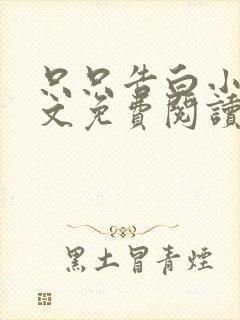 只只告白小
文免費閱讀
黑土冒青煙